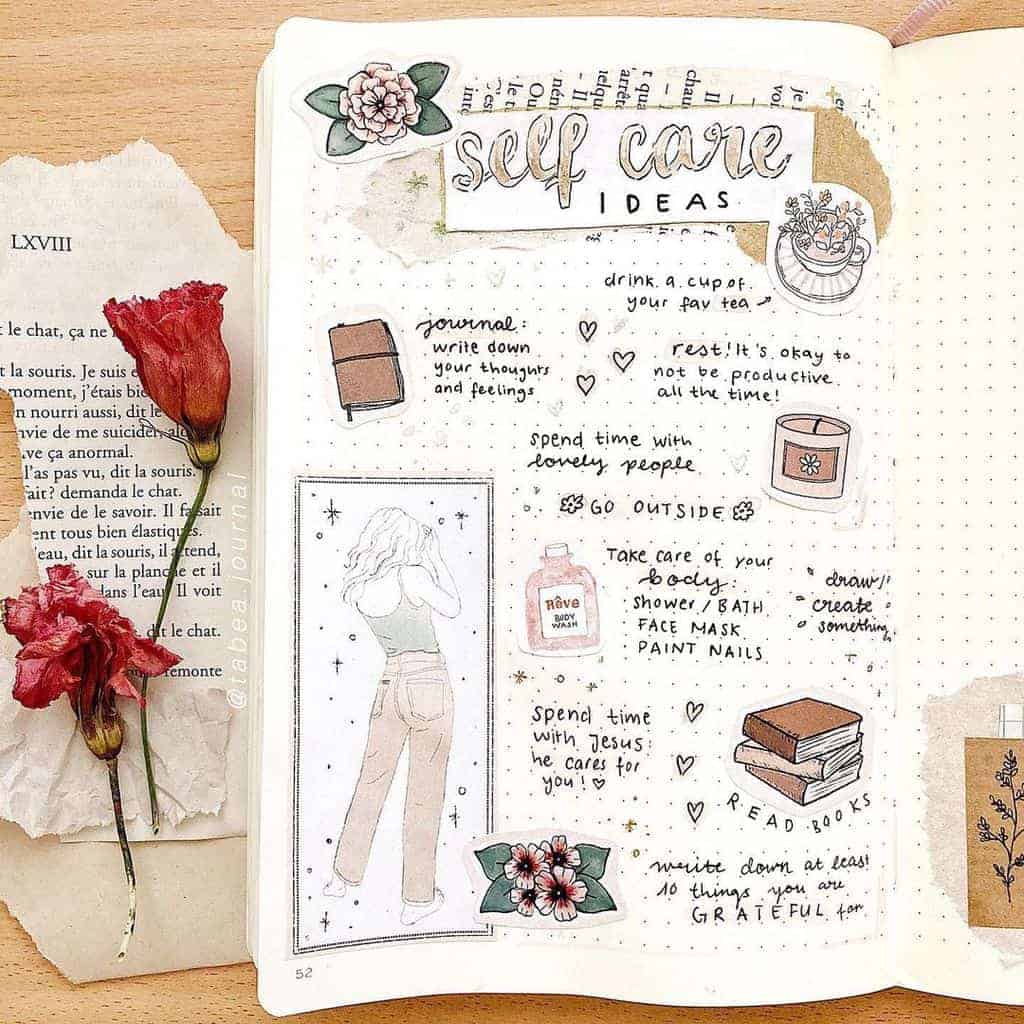 LXVIII
t le chat, ça ne
t la souris. Je suis
moment, j'étais bie
n nourri aussi, dit le
nvie de me suicider, alo
ve ça anormal.
l'as pas vu, dit la souris.
fait? demanda le chat.
envie de le savoir. Il faisait
ent tous bien élastiques.
l'eau, dit la souris, il attend,
sur la planche et il
dans l'eau. Il voit
dit le chat.
remonte
@tabea.journal
self care
IDEAS
drink a cup of
your fav tea
journal:
write down
your thoughts
and feelings
rest! It's okay to
not be productive
all the time!
spend time with
lovely people
GO OUTSIDE
Rêve
BODY
WASH
Take care of your
body:
· Shower / BATH
· FACE MASK
· PAINT NAILS
draw /
create
something
Spend time
with Jesus:
he cares for
you!
READ BOOKS
write down at least
10 things you are
GRATEFUL for
52